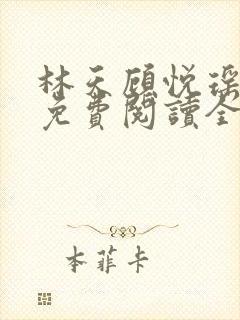 林天顧悅瑤
免費閱讀全
本菲卡